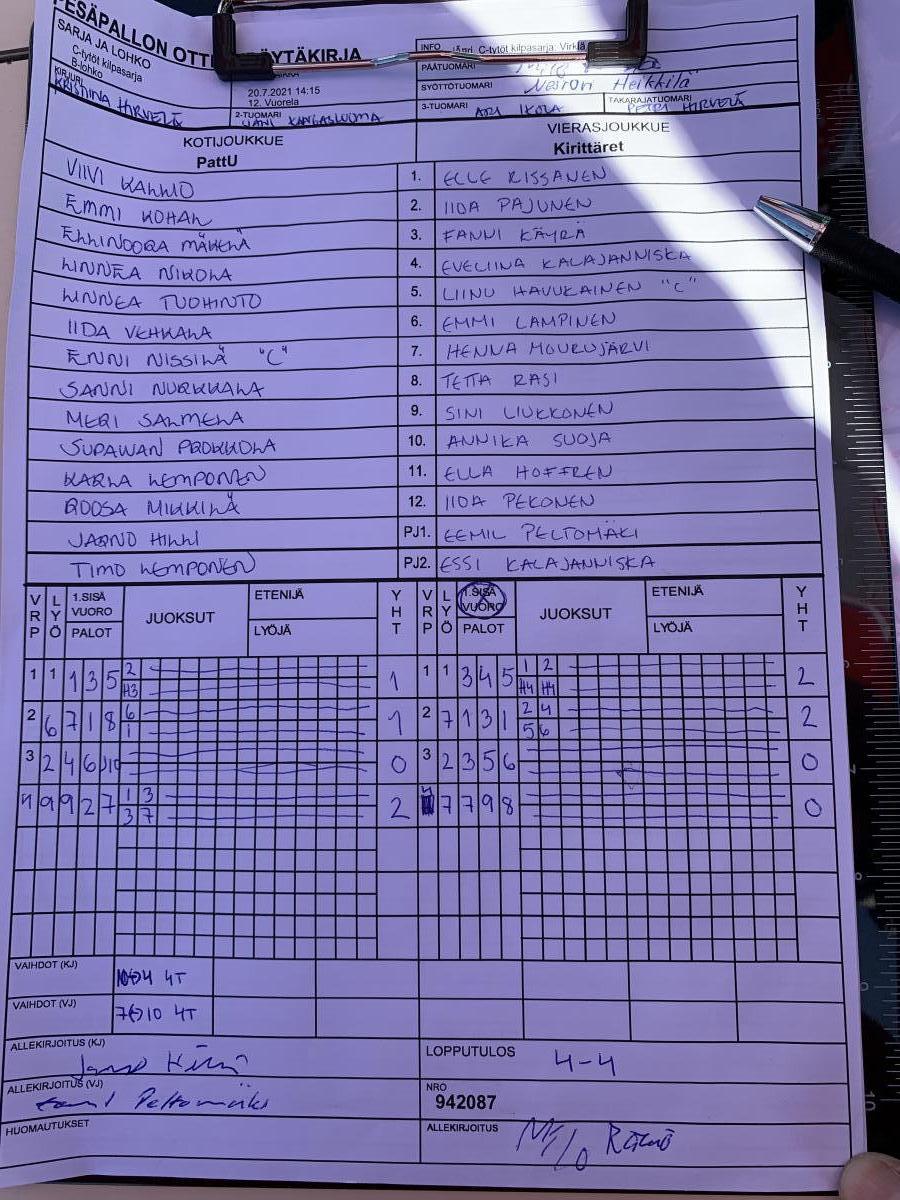 PESÄPALLON
SARJA JA LOHKO
C-tytöt kilpasarja
B-lohko
KIRJURI
KRISTIINA HIRVELÄ
20.7.2021 14:15
12. Vuorela
2-TUOMARI
JANI KANGASLUOMA
INFO
C-tytöt kilpasarja: Virkiä
PÄÄTUOMARI
SYÖTTÖTUOMARI
Heikkilä
3-TUOMARI
ARI IKOLA
TAKARAJATUOMARI
PETRI HIRVELÄ
KOTIJOUKKUE
PattU
VIERASJOUKKUE
Kirittäret
VIIVI KALLIO 1. ELLE RISSANEN
EMMI KOHAL 2. IIDA PAJUNEN
ELLINOORA MÄKELÄ 3. FANNI KÄYRÄ
LINNEA NIKOLA 4. EVELIINA KALAJANNISKA
LINNEA TUOHINTO 5. LIINU HAVUKAINEN "C"
IIDA VEHKALA 6. EMMI LAMPINEN
ENNI NISSILÄ "C" 7. HENNA MOURUJÄRVI
SANNI NURKKALA 8. TETTA RASI
MERI SALMELA 9. SINI LIUKKONEN
SUPAWAN PROKKOLA 10. ANNIKA SUOJA
KARLA LEMPONEN 11. ELLA HOFFREN
ROOSA MIKKILÄ 12. IIDA PEKONEN
JARNO HILLI PJ1. EEMIL PELTOMÄKI
TIMO LEMPONEN PJ2. ESSI KALAJANNISKA
VRP LYÖ 1.SISÄ VUORO PALOT JUOKSUT ETENIJÄ LYÖJÄ YHT VRP LYÖ 1.SISÄ VUORO PALOT JUOKSUT ETENIJÄ LYÖJÄ YHT
1 1 1 3 5 2 H3 1 1 1 3 4 5 1 2 H4 H4 2
2 6 7 1 8 6 1 1 2 7 1 3 1 2 4 5 6 2
3 2 4 6 J10 0 3 2 3 5 6 0
4 9 9 2 7 1 3 3 7 2 4 7 7 9 8 0
VAIHDOT (KJ) 10↔4 4T
VAIHDOT (VJ) 7↔10 4T
ALLEKIRJOITUS (KJ)
LOPPUTULOS 4-4
ALLEKIRJOITUS (VJ)
Eemil Peltomäki
NRO
942087
HUOMAUTUKSET
ALLEKIRJOITUS